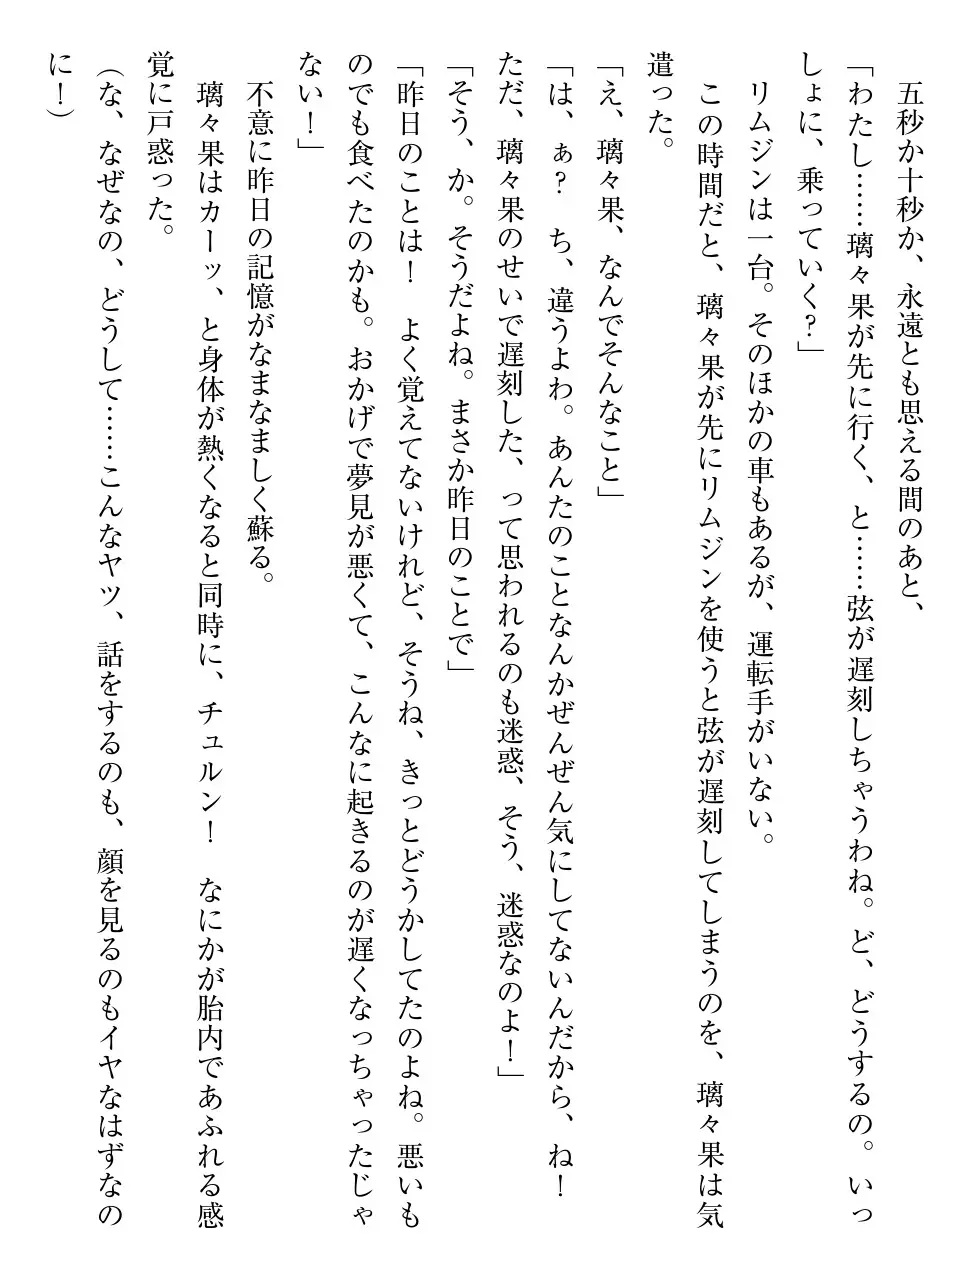 五秒か十秒か、永遠とも思える間のあと、
「わたし……璃々果が先に行く、と……弦が遅刻しちゃうわね。ど、どうするの。いっ
しょに、乗っていく?」
リムジンは一台。そのほかの車もあるが、運転手がいない。
この時間だと、璃々果が先にリムジンを使うと弦が遅刻してしまうのを、璃々果は気
遣った。
「え、璃々果、なんでそんなこと」
「は、ぁ?　ち、違うよわ。あんたのことなんかぜんぜん気にしてないんだから、ね!
ただ、璃々果のせいで遅刻した、って思われるのも迷惑、そう、迷惑なのよ!」
「そう、か。そうだよね。まさか昨日のことで」
「昨日のことは!　よく覚えてないけれど、そうね、きっとどうかしてたのよね。悪いも
のでも食べたのかも。おかげで夢見が悪くて、こんなに起きるのが遅くなっちゃったじゃ
ない!」
不意に昨日の記憶がなまなましく蘇る。
璃々果はカーッ、と身体が熱くなると同時に、チュルン!　なにかが胎内であふれる感
覚に戸惑った。
(な、なぜなの、どうして……こんなヤツ、話をするのも、顔を見るのもイヤなはずなの
に!)